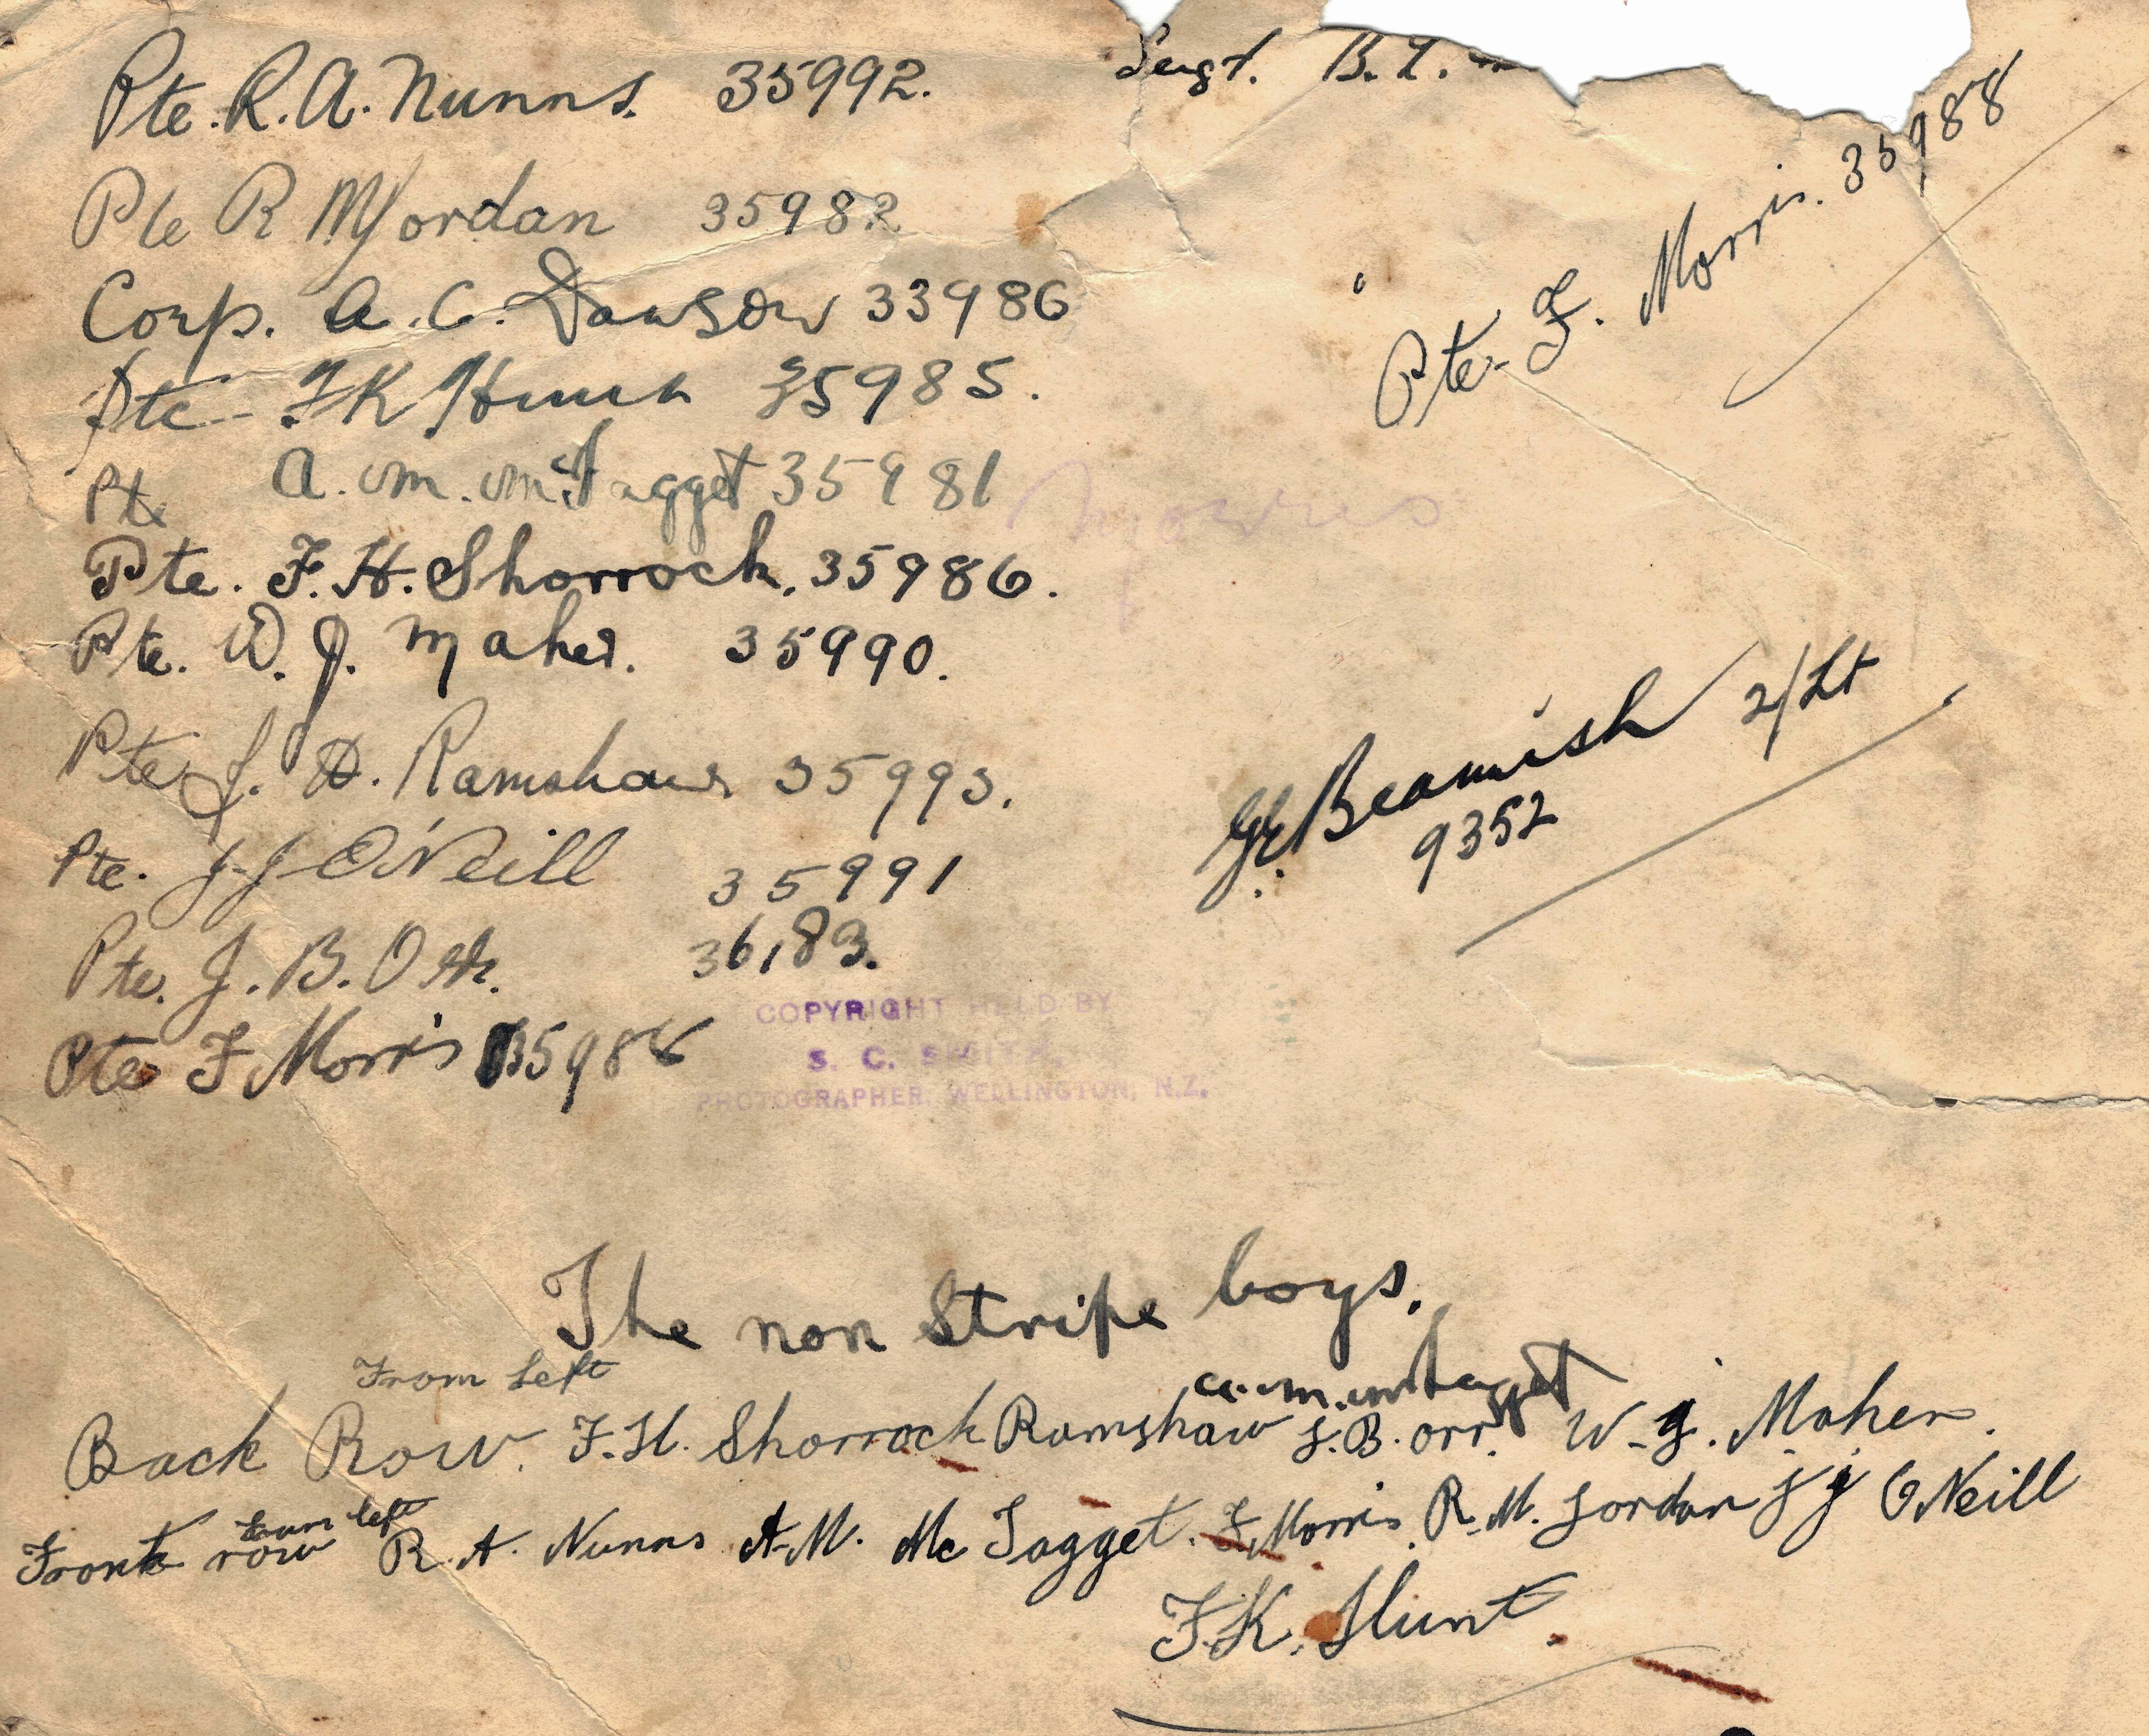 Pte. R. A. Nunns. 35992.
Pte R M Jordan 35982
Corp. A. C. Dawson 33986
Pte - F K Hunt 35985.
Pte A. M. McTagget 35981
Pte. F. H. Shorrock. 35986.
Pte. W. J. Maher. 35990.
Pte J. H. Ramshaw 35993.
Pte. J. J. O'Neill 35991
Pte. J. B. Orr. 36183.
Pte F Morris 35988
Sergt. B. L.
Pte. F. Morris. 35988
Morris
G.E. Beamish 2/Lt
9352
COPYRIGHT HELD BY
S. C. SMITH,
PHOTOGRAPHER, WELLINGTON, N.Z.
The non Stripe boys.
From Left
a. m. mctagget
Back Row. F. H. Shorrock Ramshaw J. B. orr. W. J. Maher.
from left
Front row R. A. Nunns A. M. Mc Tagget. F Morris. R. M. Jordan J J O'Neill
F. K. Hunt.